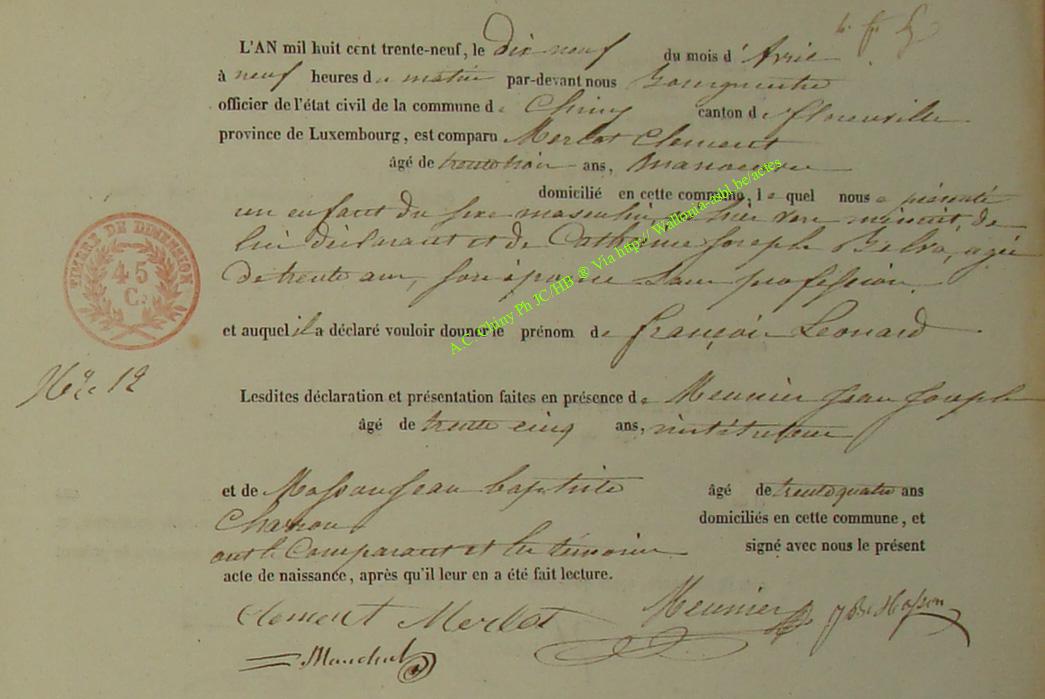 L'AN mil huit cent trente-neuf, le dix neuf du mois d'Avril
à neuf heures du matin par-devant nous Bourgmestre
officier de l'état civil de la commune de Chiny canton de florenville
province de Luxembourg, est comparu Merlot Clement
âgé de trente trois ans, manoeuvre
domicilié en cette commune, lequel nous a présenté
un enfant du sexe masculin, né hier vers minuit, de
lui déclarant et de Catherine Joseph agée
de trente ans, son épouse sans profession
et auquel il a déclaré vouloir donner le prénom de françois Leonard
Nce 12
Lesdites déclaration et présentation faites en présence de Meunier Jean Joseph
âgé de trente cinq ans, instituteur
et de Masson Jean baptiste âgé de trente quatre ans
Charron domiciliés en cette commune, et
ont le Comparant et les témoins signé avec nous le présent
acte de naissance, après qu'il leur en a été fait lecture.
Clement Merlot Meunier JBte Masson
TIMBRE DE DIMENSION
45
C.s
A.C. Chiny Ph JC/HB ® Via http://Wallonia-asbl.be/actes